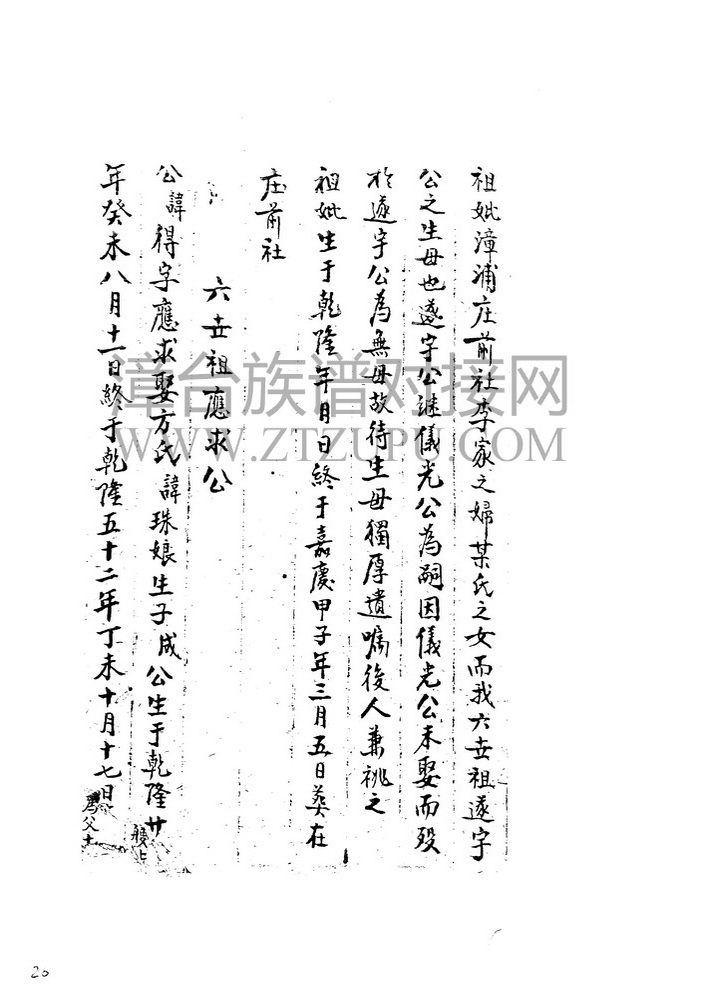 祖妣漳浦庄前社李家之婦某氏之女而我六世祖遂字
公之生母也遂字公继儀光公為嗣因儀光公未娶而殁
於遂字公為無母故待生母獨厚遺嘱後人兼祧之
祖妣生于乾隆年月日終于嘉慶甲子年三月五日葬在
庄前社
六世祖應求公
公諱得字應求娶方氏諱珠娘生子成公生于乾隆廿
年癸未八月十一日終于乾隆五十二年丁未十月十七日
漳台族谱对接网
WWW.ZTZUPU.COM
20